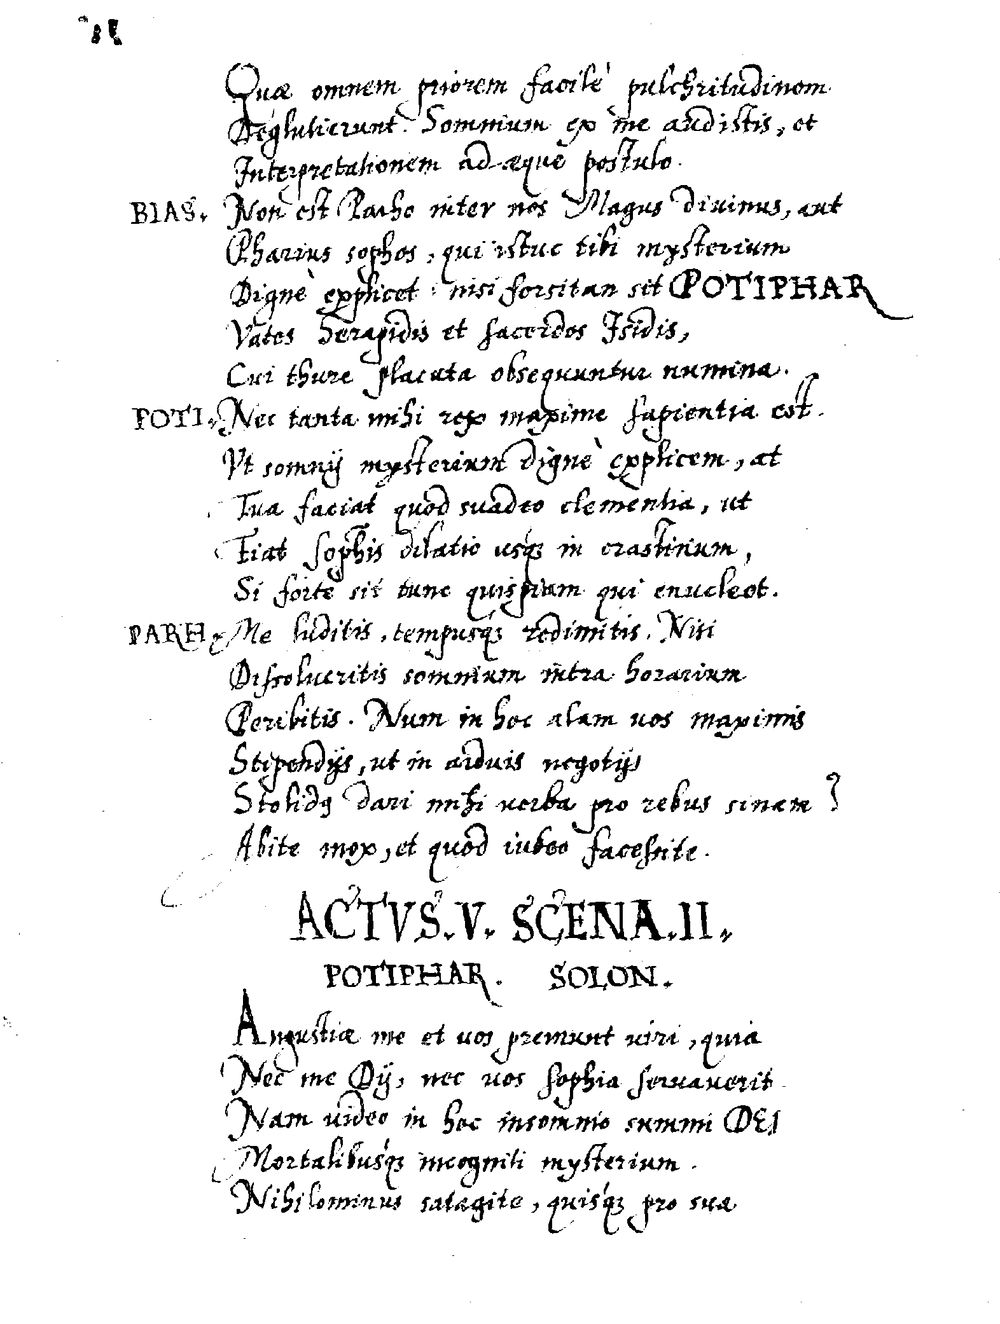 Quæ omnem priorem facilè pulchritudinem
Deglutierunt. Somnium ex me audistis, et
Interpretationem ad æquè postulo.
BIAS. Non est Parho inter nos Magus divinus, aut
Pharius sophos, qui istuc tibi mysterium
Dignè explicet: nisi forsitan sit POTIPHAR
Vates Serapidis et sacerdos Isidis,
Cui thure placata obsequuntur numina.
POTI. Nec tanta mihi rex maxime sapientia est.
Vt somnij mysterium dignè explicem, at
Tua faciat quod suadeo clementia, ut
Fiat sophis dilatio usq; in crastinum,
Si forte sit tunc quispiam qui enucleet.
PARH. Me luditis, tempusq; redimitis. Nisi
Dissolueritis somnium intra horarium
Peribitis. Num in hoc alam uos maximis
Stipendijs, ut in arduis negotijs
Stolidę dari mihi uerba pro rebus sinam?
Abite mox, et quod iubeo facessite.
ACTVS. V. SCENA. II.
POTIPHAR. SOLON.
Angustiæ me et uos premunt uiri, quia
Nec me Dij, nec uos sophia seruauerit.
Nam uideo in hoc insomnio summi DEI
Mortalibusq; incogniti mysterium.
Nihilominus satagite, quisq; pro sua